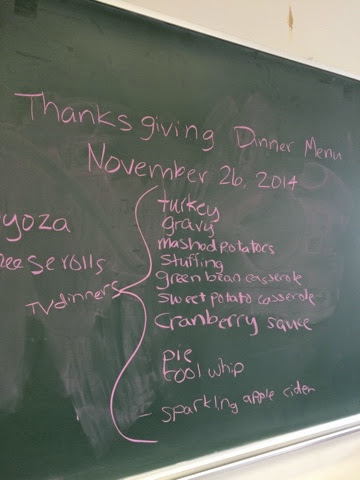 Thanksgiving Dinner Menu
November 26, 2014
turkey
gravy
mashed potators
Stuffing
green bean casserole
sweet potato casserole
cranberry sauce
pie
cool whip
- sparkling apple cider
yoza
eese rolls
TV dinners